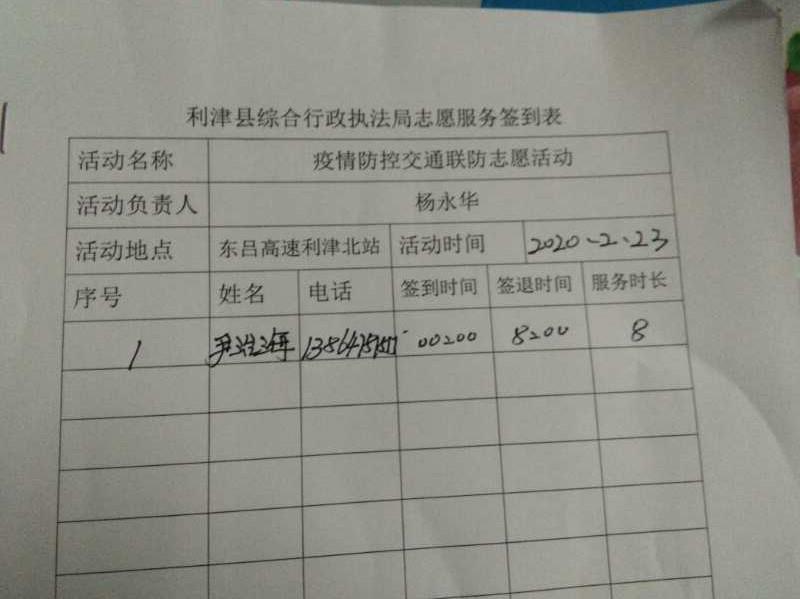 利津县综合行政执法局志愿服务签到表
活动名称 疫情防控交通联防志愿活动
活动负责人 杨永华
活动地点 东吕高速利津北站 活动时间 2020-2.23
序号 姓名 电话 签到时间 签退时间 服务时长
1 00:00 8:00 8